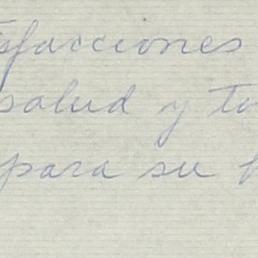 sfacciones
salud y to
para su